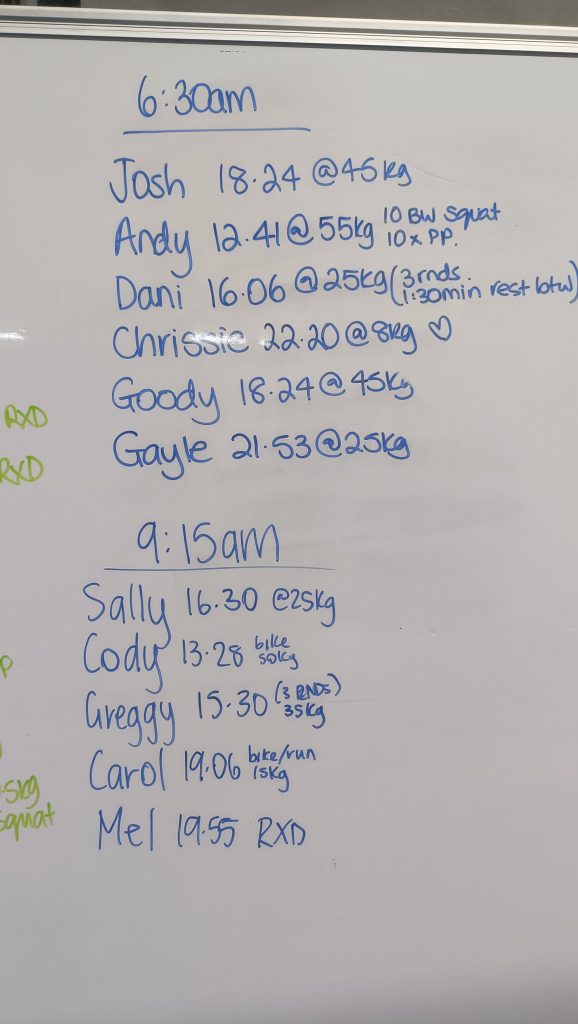 6:30am
Josh 18.24 @45kg
Andy 12.41@55kg 10 BW squat
10 x PP.
Dani 16.06 @25kg (3rnds.
1:30min rest btw)
Chrissie 22.20@8kg ♡
Goody 18.24@45kg
Gayle 21.53@25kg
RXD
RXD
9:15am
Sally 16.30 @25kg
Cody 13.28 bike
50kg
Greggy 15.30 (3 RNDS)
35kg
Carol 19.06 bike/run
15kg
Mel 19.55 RXD
P
.5kg
squat